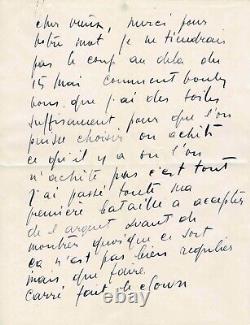 cher vieux, merci pour
votre mot je ne tiendrais
pas le coup au delà du
15 mai comment voulez
vous que j'ai des toiles
suffisamment pour que l'on
puisse choisir on achète
ce qu'il y a ou l'on
n'achète pas c'est tout
j'ai passé toute ma
première bataille a accepter
de l argent avant de
montrer quoique ce soit
ça n'est pas bien régulier
mais que faire
carré fait le clown